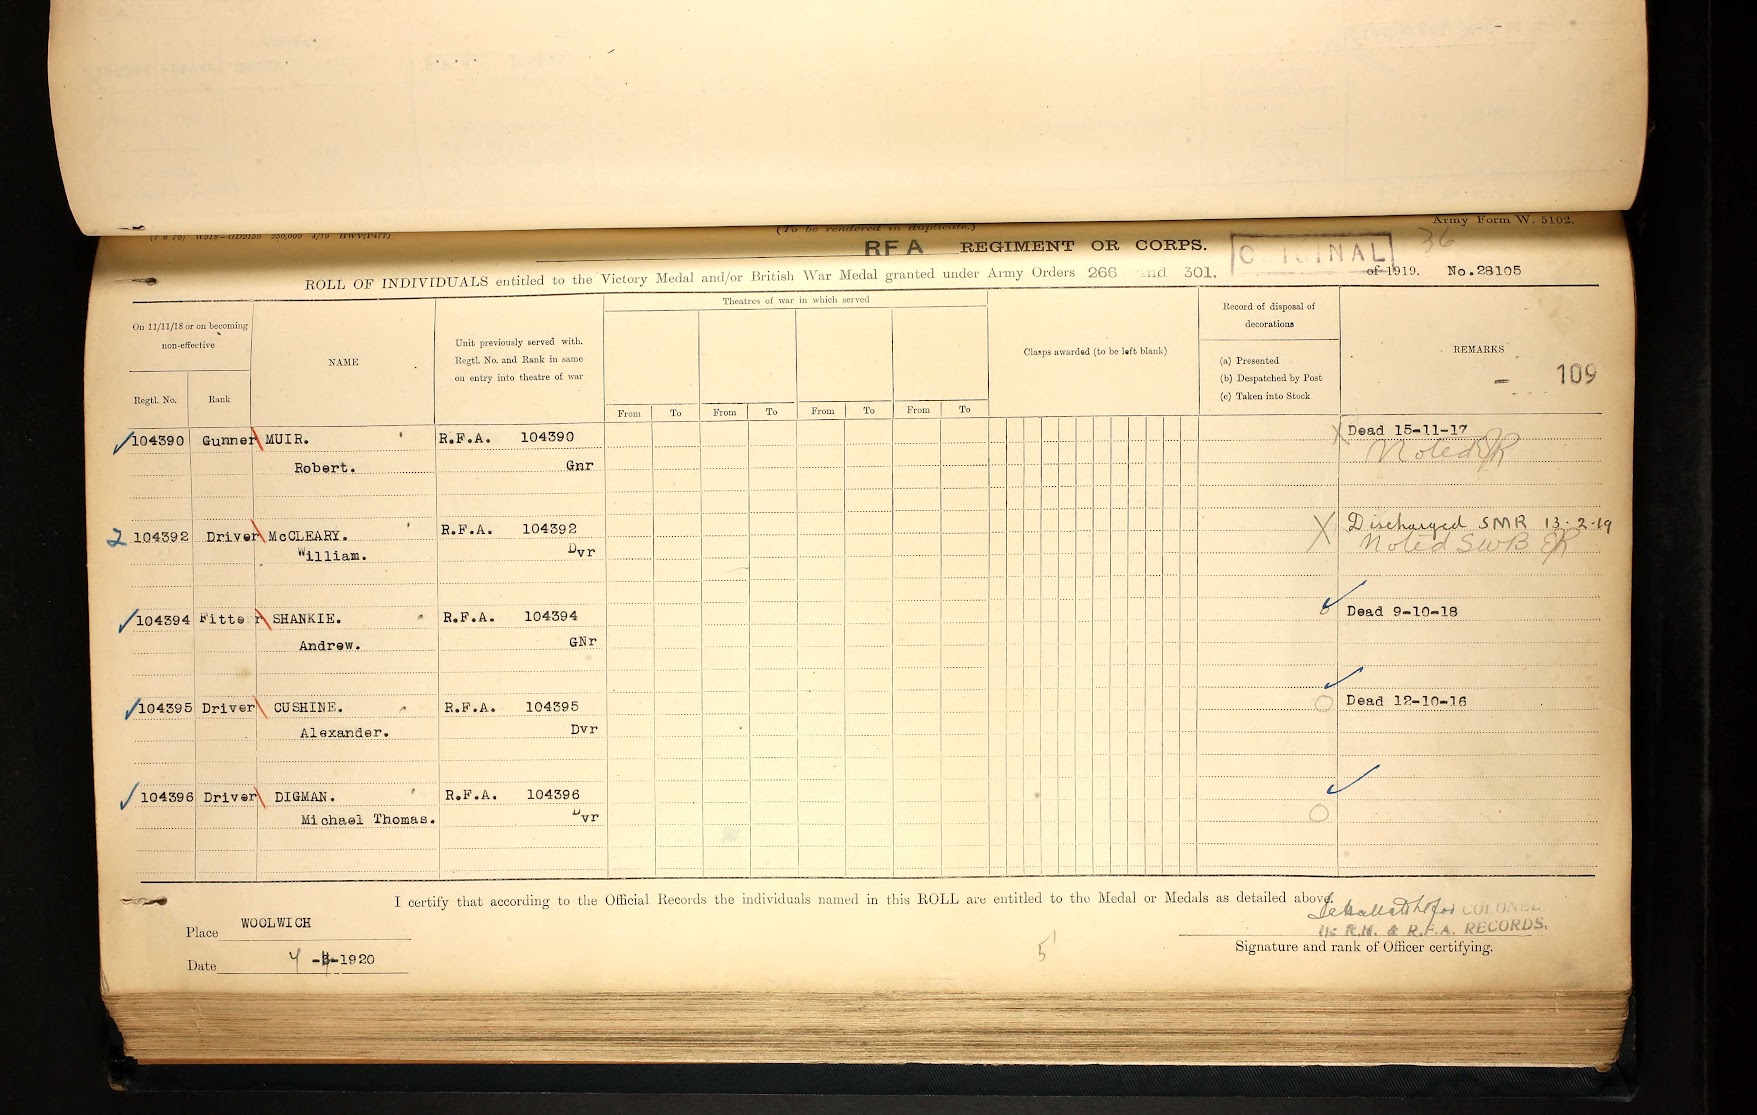 Army Form W. 5102.
(To be rendered in duplicate.)
RFA REGIMENT OR CORPS.
36
ROLL OF INDIVIDUALS entitled to the Victory Medal and/or British War Medal granted under Army Orders 266 and 301, of 1919. No.28105
On 11/11/18 or on becoming
non-effective
Regtl. No.
Rank
NAME
Unit previously served with.
Regtl. No. and Rank in same
on entry into theatre of war
Theatres of war in which served
From To From To From To From To
Clasps awarded (to be left blank)
Record of disposal of
decorations
(a) Presented
(b) Despatched by Post
(c) Taken into Stock
REMARKS
109
104390 Gunner MUIR. R.F.A. 104390 Dead 15-11-17
Robert. Gnr Noted
2 104392 Driver McCLEARY. R.F.A. 104392 Discharged SMR 13.2.19
William. Dvr Noted SWB
104394 Fitter SHANKIE. R.F.A. 104394 Dead 9-10-18
Andrew. GNr
104395 Driver CUSHINE. R.F.A. 104395 Dead 12-10-16
Alexander. Dvr
104396 Driver DIGMAN. R.F.A. 104396
Michael Thomas. Dvr
I certify that according to the Official Records the individuals named in this ROLL are entitled to the Medal or Medals as detailed above.
Place WOOLWICH
for COLONEL
R.H. & R.F.A. RECORDS.
Signature and rank of Officer certifying.
Date -1920
5